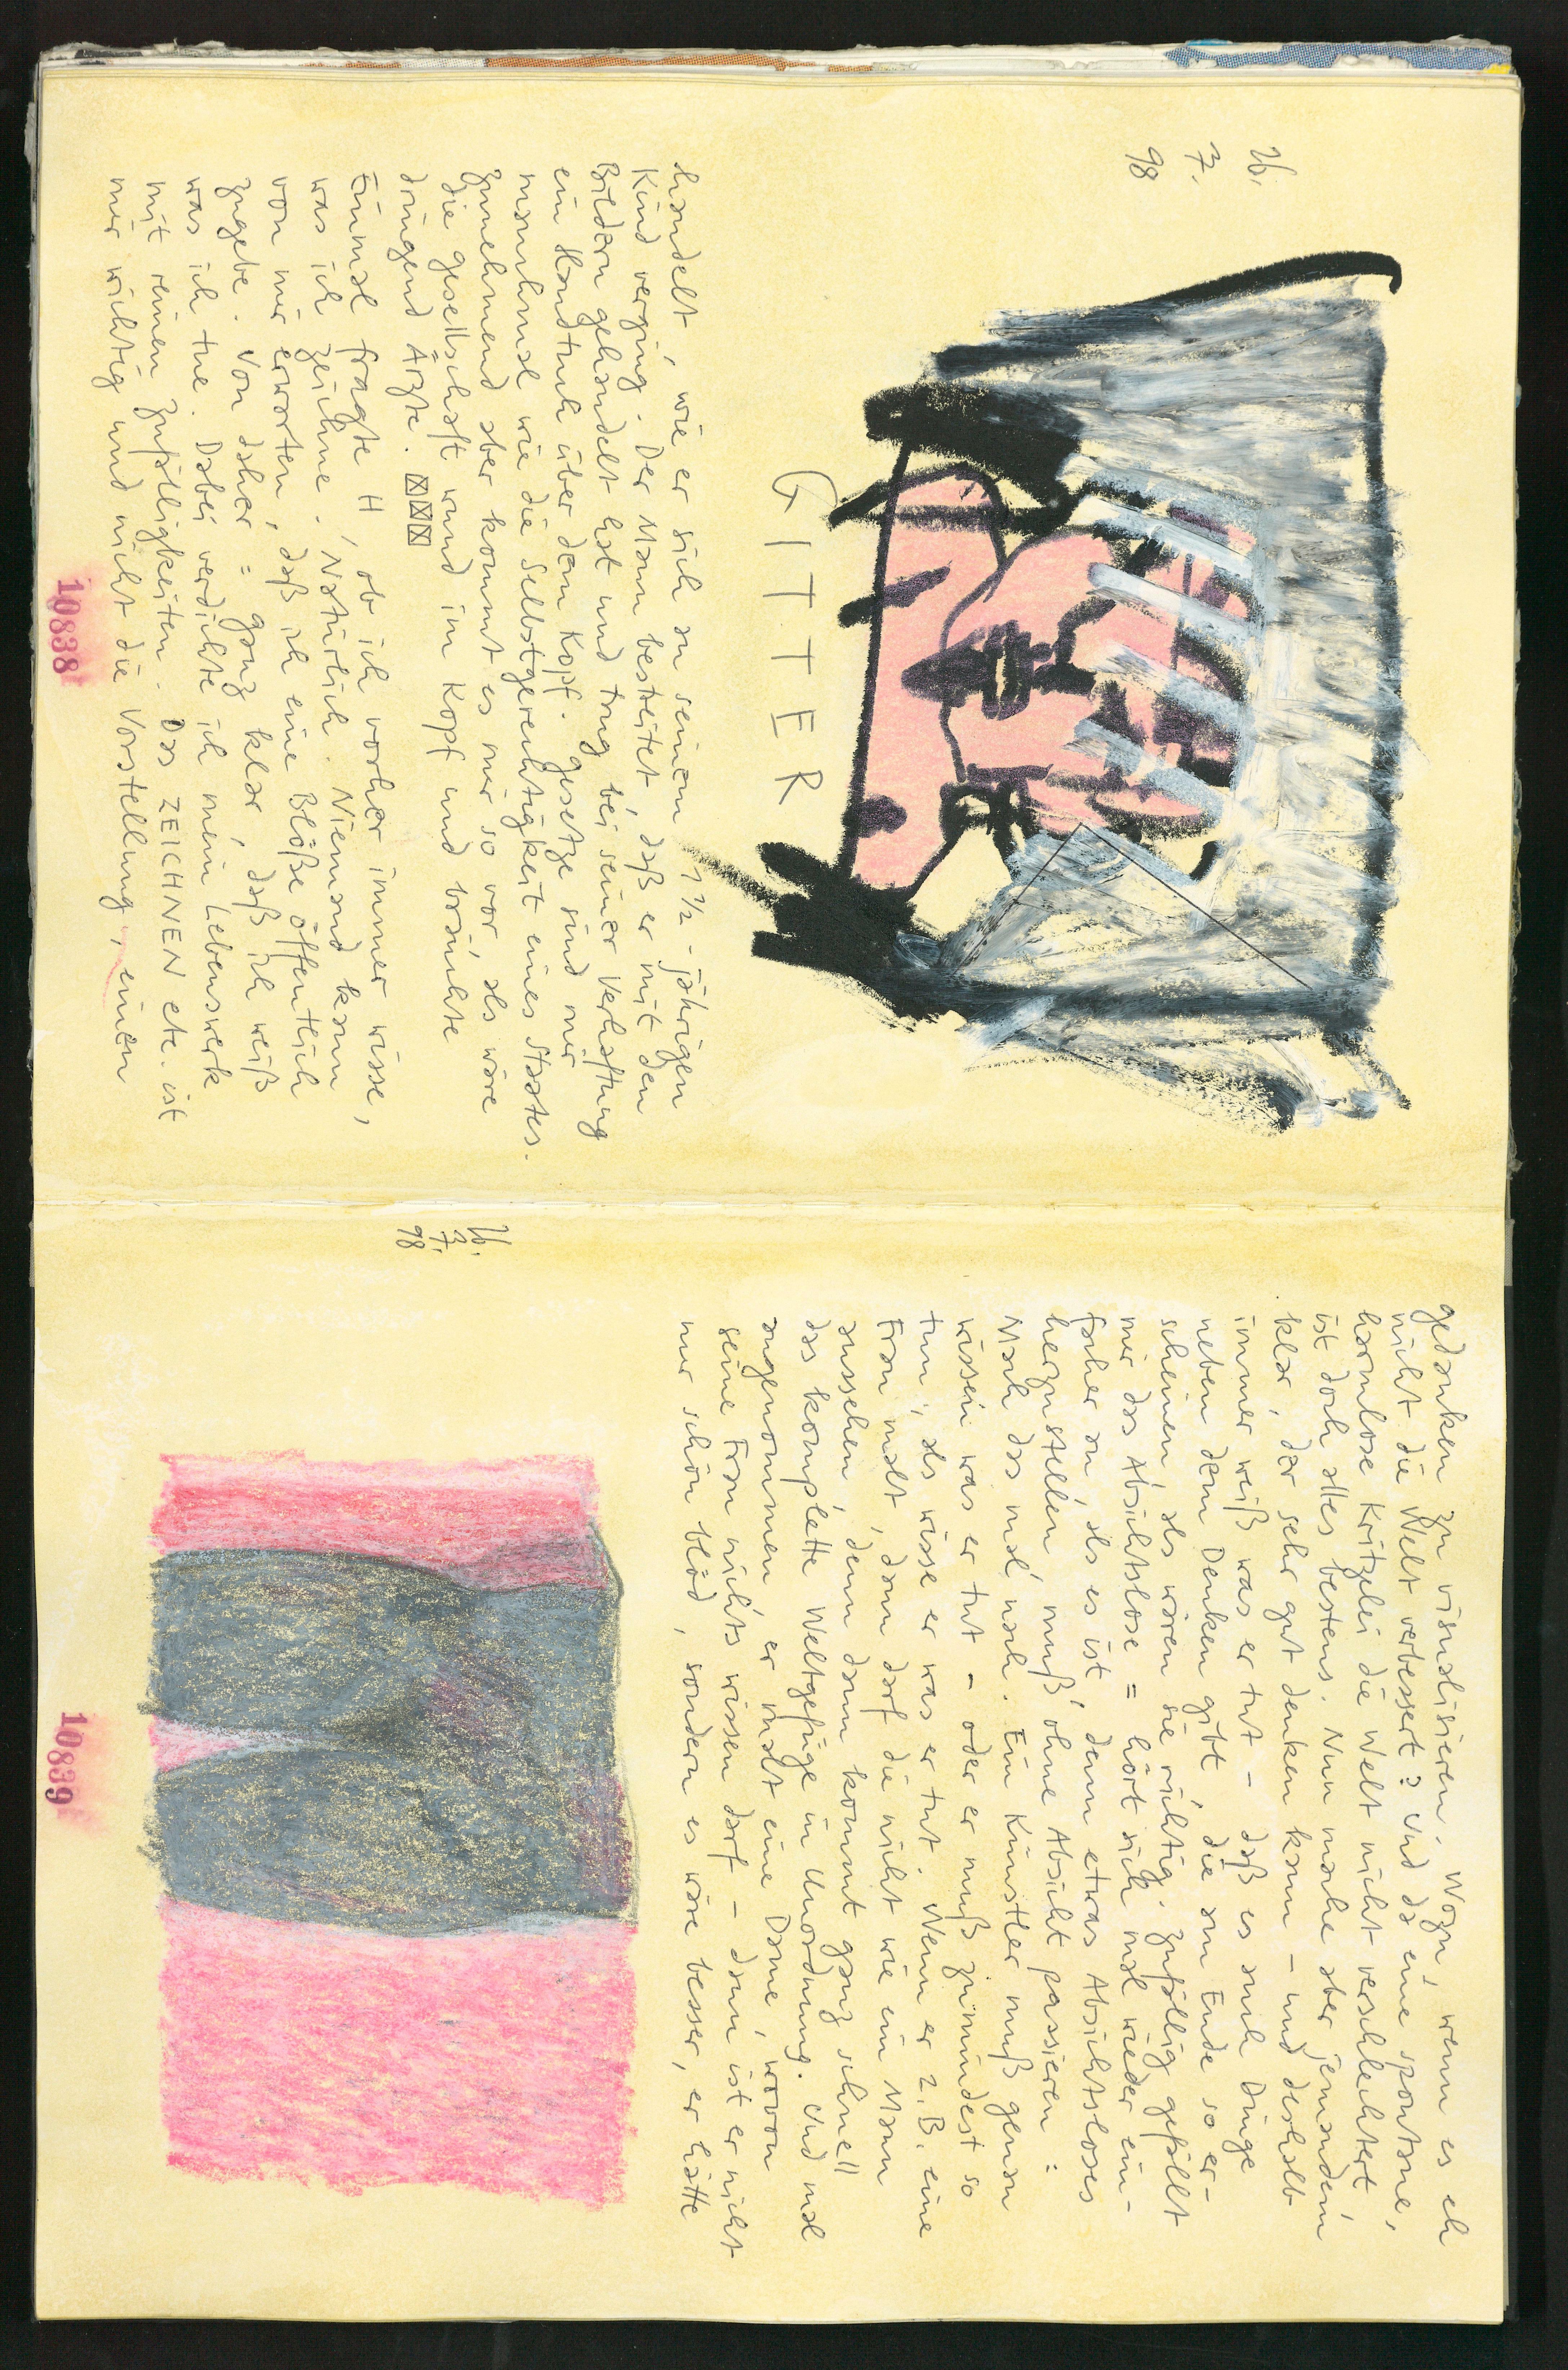 26.
7.
98
GITTER
handelt, wie er sich an seinem 1 1/2-jährigen
Kind verging. Der Mann bestreitet, daß er mit den
Bildern gehandelt hat und trug bei seiner Verhaftung
ein Handtuch über dem Kopf. Gesetze sind mir
manchmal wie die Selbstgerechtigkeit eines Staates.
Zunehmend aber kommt es mir so vor, als wäre
die Gesellschaft wund im Kopf und bräuchte
dringend Ärzte. ☒☒☒
Einmal fragte H, ob ich vorher immer wisse,
was ich zeichne. Natürlich. Niemand kann
von mir erwarten, daß ich eine Blöße öffentlich
zugebe. Von daher = ganz klar, daß ich weiß
was ich tue. Dabei verdichte ich mein Lebenswerk
mit reinen Zufälligkeiten. Das ZEICHNEN etc. ist
mir wichtig und nicht die Vorstellung, einen
10838
26.
7.
98
Gedanken zu visualisieren. Wozu, wenn es eh
nicht die Welt verbessert? Und da eine spontane,
harmlose Kritzelei die Welt nicht verschlechtert,
ist doch alles bestens. Nun mache aber jemandem
klar, der sehr gut denken kann - und deshalb
immer weiß was er tut - daß es auch Dinge
neben dem Denken gibt, die am Ende so er-
scheinen, als wären sie richtig. Zufällig gefällt
mir das Absichtslose = hört sich mal wieder ein-
facher an, als es ist, denn etwas Absichtsloses
herzustellen, muß ohne Absicht passieren:
Mach das mal nach. Ein Künstler muß genau
wissen was er tut - oder er muß zumindest so
tun, als wisse er was er tut. Wenn er z.B. eine
Frau malt, dann darf die nicht wie ein Mann
aussehen, denn dann kommt ganz schnell
das komplette Weltgefüge in Unordnung. Und mal
angenommen er malt eine Dame, wovon
seine Frau nichts wissen darf - dann ist er nicht
nur schön blöd, sondern es wäre besser, er hätte
10839